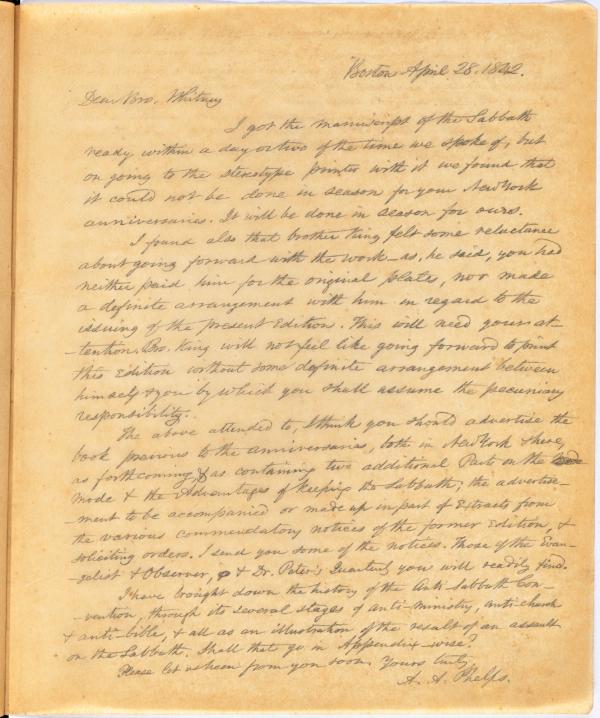 Boston April 28. 1842.
Dear Bro. Whitney
I got the manuscript of the Sabbath
ready within a day or two of the time we spoke of, but
on going to the stereotype printer with it we found that
it could not be done in season for your New York
anniversaries. It will be done in season for ours.
I found also that brother King felt some reluctance
about going forward with the work—as, he said, you had
neither paid him for the original plates, nor made
a definite arrangement with him in regard to the
issuing of the present Edition. This will need your at-
-tention. Bro. King will not feel like going forward to print
this Edition without some definite arrangement between
himself & you by which you shall assume the pecuniary
responsibility.
The above attended to, I think you should advertise the
book previous to the anniversaries, both in New York & here,
as forthcoming, & as containing two additional Parts on the
Mode & the Advantages of keeping the Sabbath; the advertise-
-ment to be accompanied or made up in part of Extracts from
the various commendatory notices of the former Edition, &
soliciting orders. I send you some of the notices. Those of the Evan-
-gelist & Observer, & Dr. Peter's Quarterly you will readily find.
I have brought down the history of the Anti-Sabbath Con-
-vention, through its several stages of anti-ministry, anti-church
& anti-bible, & all as an illustration of the result of an assault
on the Sabbath. Shall that go in Appendix-wise?
Please let us hear from you soon. Yours truly,
A. A. Phelps.